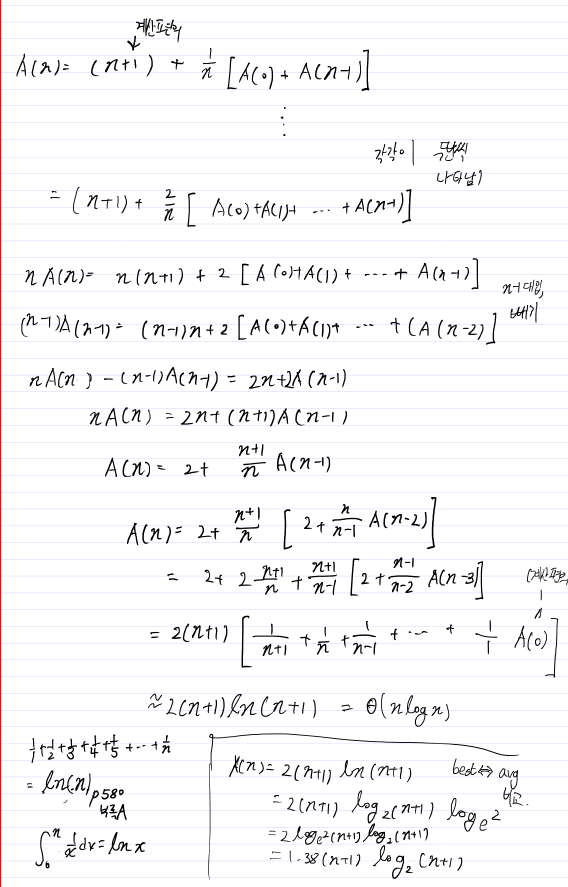 계산표현의
↓
A(n) = (n+1) + 1/n [A(0) + A(n-1)]
⋮
각각이 두번씩
나타남
= (n+1) + 2/n [A(0)+A(1)+ ... +A(n-1)]
nA(n) = n(n+1) + 2 [A(0)+A(1) + ... + A(n-1)]
n-1 대입,
빼기
(n-1)A(n-1) = (n-1)n + 2 [A(0)+A(1)+ ... + (A(n-2)]
nA(n) - (n-1)A(n-1) = 2n+2A(n-1)
nA(n) = 2n+(n+1)A(n-1)
A(n) = 2+ n+1/n A(n-1)
A(n) = 2+ n+1/n [2+ n/n-1 A(n-2)]
= 2+ 2 n+1/n + n+1/n-1 [2+ n-1/n-2 A(n-3)]
= 2(n+1) [1/n+1 + 1/n + 1/n-1 + ... + 1/1 A(0)]
≈ 2(n+1) ln(n+1) = θ(n log n)
1/1+1/2+1/3+1/4+1/5+...+1/n
= ln(n) p580
부록A
∫₀ⁿ 1/x dx = ln x
A(n) = 2(n+1) ln(n+1) best ⇔ avg
비교.
= 2(n+1) log₂(n+1) logₑ2
= 2 logₑ2(n+1) log₂(n+1)
= 1.38(n+1) log₂(n+1)